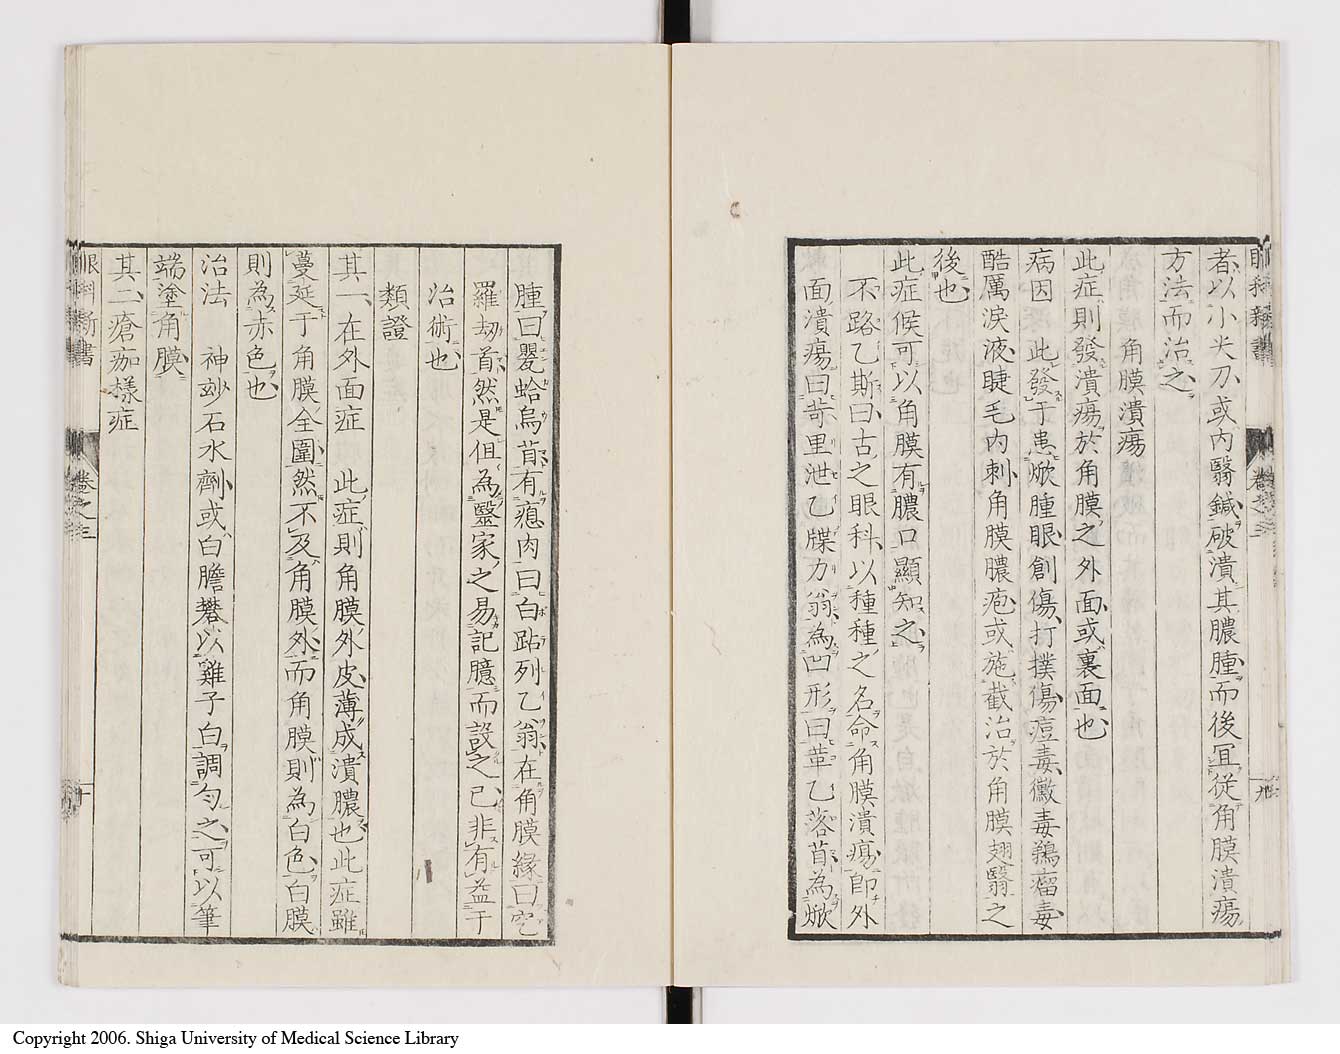 眼科新書
卷之三
九
者以小尖刀或内翳鍼破潰其膿腫而後宜從角膜潰瘍
方法而治之
角膜潰瘍
此症則發潰瘍於角膜之外面或裏面也
病因 此發于患焮腫眼創傷打撲傷痘毒黴毒鶏瘤毒
酷厲淚液睫毛内刺角膜膿疱或施截治於角膜翅翳之
後也
此症候可以角膜有膿口顯知之
不路乙斯曰古之眼科以種種之名命角膜潰瘍即外
面潰瘍曰苛里泄乙牒力翁為凹形曰革乙落苜為焮
腫曰嬰蛤烏苜有瘜肉曰白跕列乙翁在角膜緣曰空
羅劫首然是但為毉家之易記臆而設之已非有益于
治術也
類證
其一在外面症 此症則角膜外皮薄成潰膿也此症雖
蔓延于角膜全圍然不及角膜外而角膜則為白色白膜
則為赤色也
治法 神妙石水劑或白膽礬以雞子白調勻之可以筆
端塗角膜
其二瘡痂樣症
眼科新書
卷之三
十
Copyright 2006. Shiga University of Medical Science Library